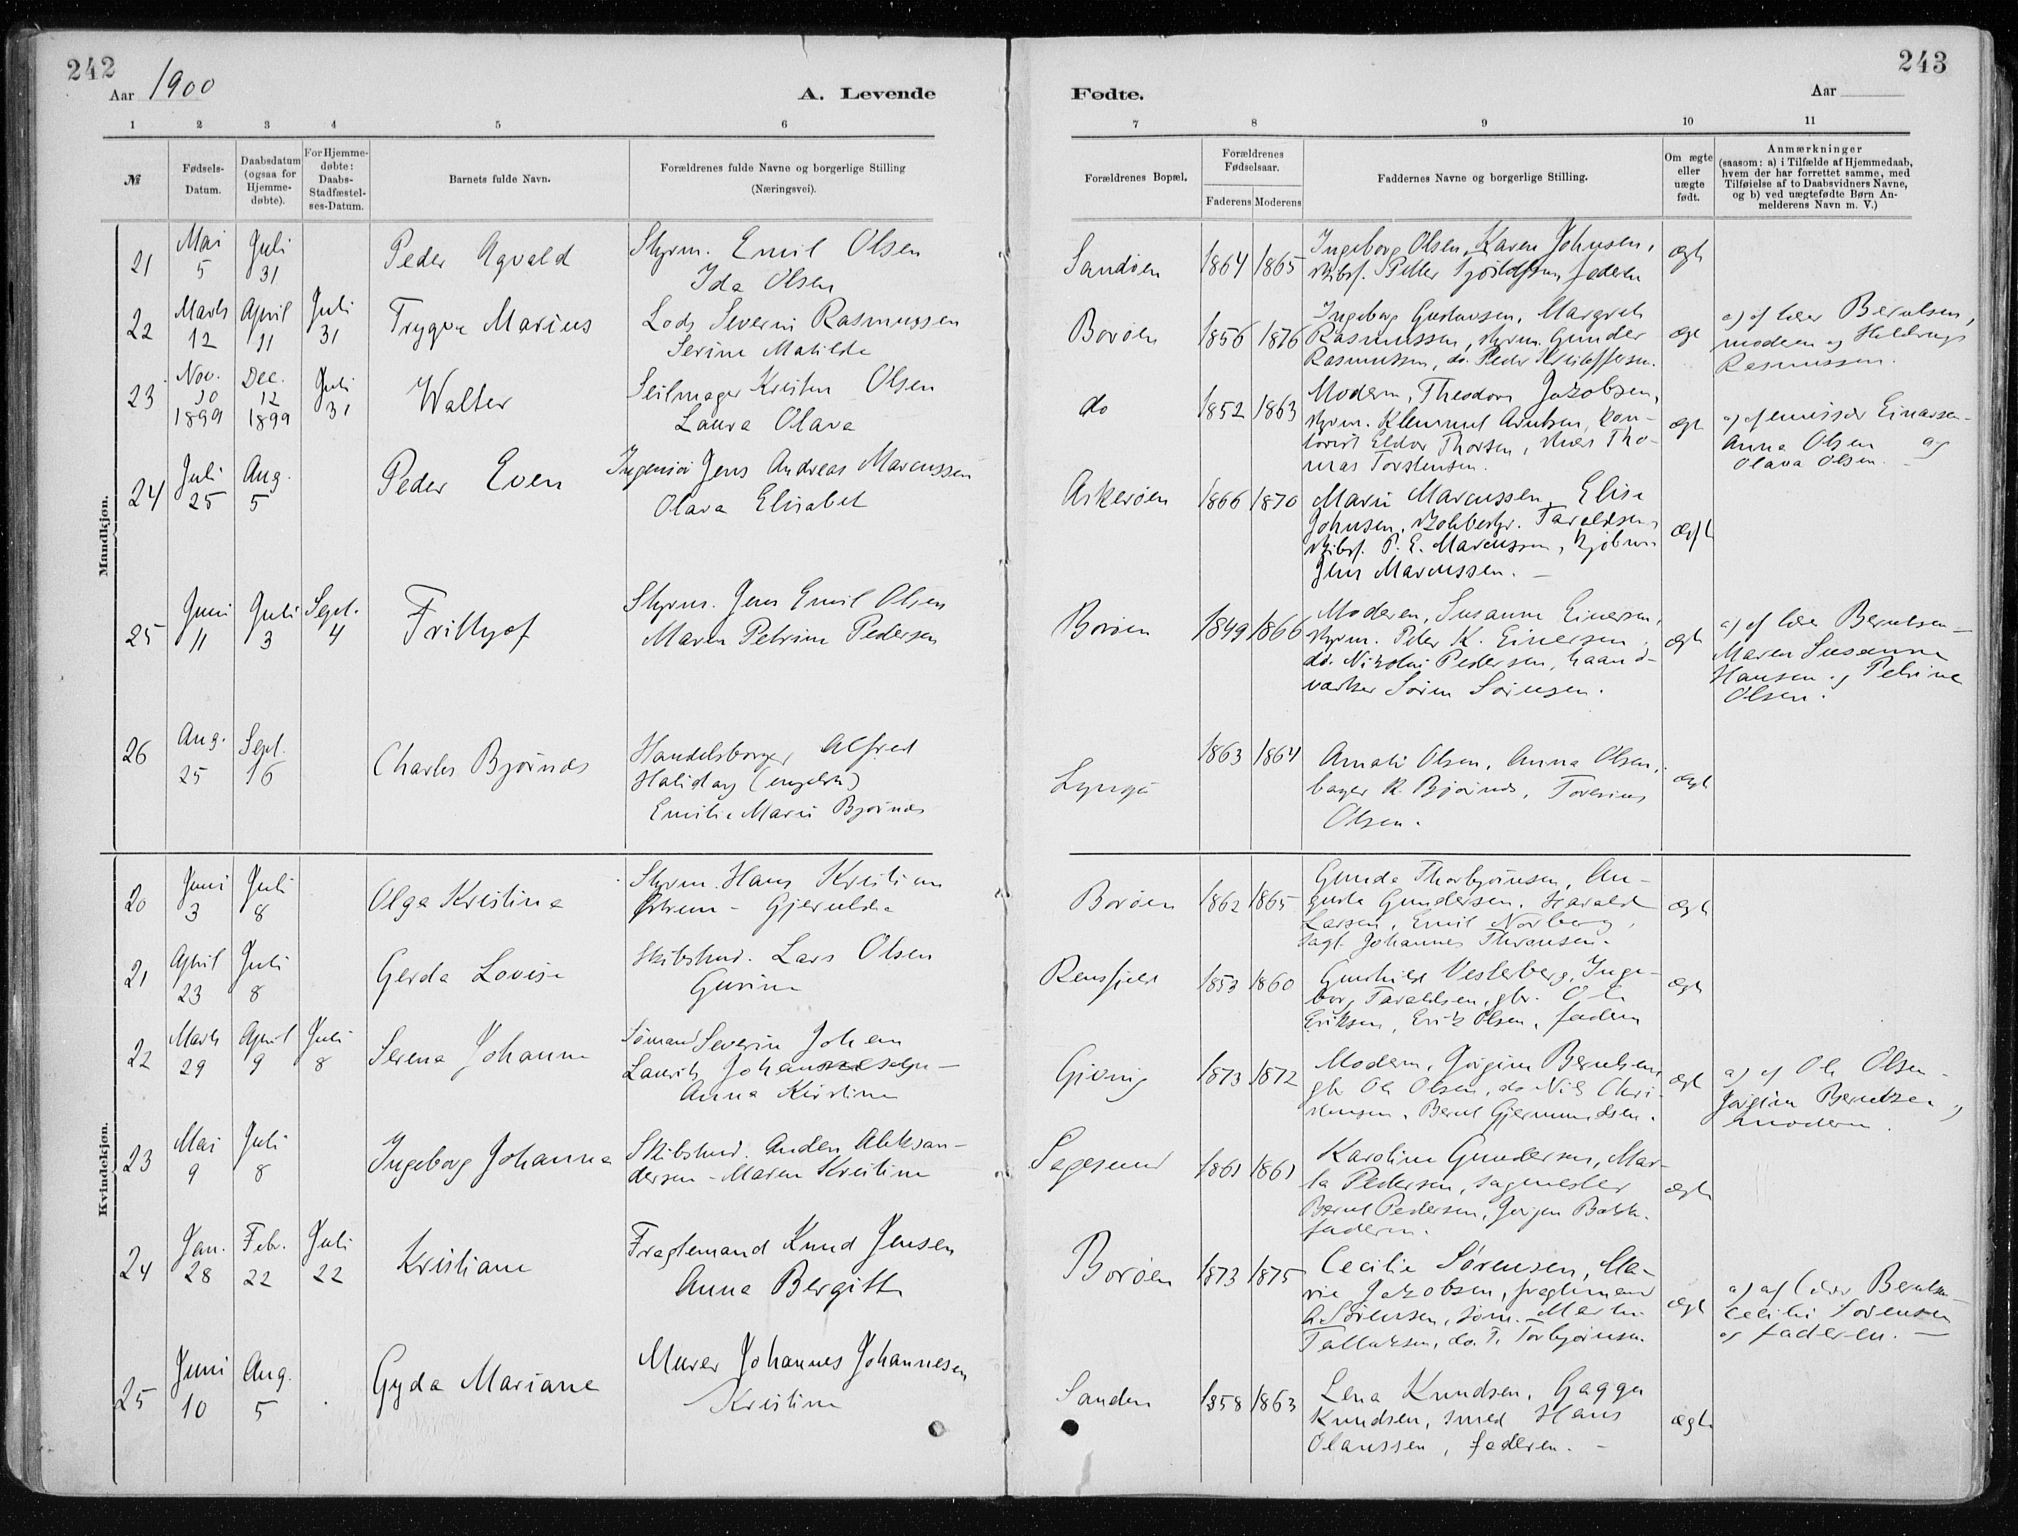 242
243
Aar 1900
A. Levende
Fødte.
Aar
1 2 3 4 5 6
7 8 9 10 11
№
Fødsels-
Datum.
Daabsdatum
(ogsaa for
Hjemme-
døbte).
For Hjemme-
døbte:
Daabs-
Stadfæstel-
ses-Datum.
Barnets fulde Navn.
Forældrenes fulde Navne og borgerlige Stilling
(Næringsvei).
Forældrenes Bopæl.
Forældrenes
Fødselsaar.
Faderens Moderens
Faddernes Navne og borgerlige Stilling.
Om ægte
eller
uægte
født.
Anmærkninger
(saasom: a) i Tilfælde af Hjemmedaab,
hvem der har forrettet samme, med
Tilføielse af to Daabsvidners Navne,
og b) ved uægtefødte Børn An-
melderens Navn m. V.)
Mandkjøn.
21
Mai
5
Juli
31
Peder Agvald
Styrm. Emil Olsen
Ida Olsen
Sandøen
1864 1865
Ingeborg Olsen, Karen Johnsen,
faderen
ægt
22
Marts
12
April
11
Juli
31
Trygve Marius
Lods Severin Rasmussen
Serine Matilde
Borøen
1856 1876
Ingeborg Gustavsen, Margret
Rasmussen, styrm. Gunder
Rasmussen, do. Peder Kristoffersen.
ægt
a) af lærer Berntsen,
modern og
Rasmussen.
23
Nov.
30
1899
Dec.
12
1899
Juli
31
Walter
Seilmager Kristen Olsen
Laura Olava
do
1852 1863
Modern, Theodora Jakobsen,
styrm. Klemmet Arntsen, kon-
torist Eldor Thorsen, Tho-
mas Torstensen.
ægt
a) af emissær Einarsen -
Anna Olsen og
Olava Olsen.
24
Juli
25
Aug.
5
Peder Even
Ingeniør Jens Andreas Marcussen
Olava Elisabet
Askerøen
1866 1870
Marie Marcussen, Elise
Johnsen, Taraldsen,
skibsf. P. E. Marcussen, kjøbm.
Jens Marcussen. -
ægt
25
Juni
11
Juli
3
Sept.
4
Frithjof
Styrm. Jens Emil Olsen
Maren Petrine Pedersen
Borøen
1849 1866
Moderen, Susanne Einersen,
styrm. Peter K. Einersen,
do. Nikolai Pedersen, haand-
værker Søren Sørensen.
ægt
a) af lærer Berntsen -
Maren Susanne
Hansen og Petrine
Olsen.
26
Aug.
25
Sept.
16
Charles Bjørnds
Handelsborger Alfred
Haliday (engelsk)
Emilie Marie Bjørnds
Lyngø
1863 1864
Amalie Olsen, Anna Olsen,
bager R. Bjørnds, Toresius
Olsen.
ægt
Kvindekjøn.
20
Juni
3
Juli
8
Olga Kristine
Styrm. Hans Kristian
Østrem - Gjerulda
Borøen
1862 1865
Gunda Thorbjørnsen, Au-
gusta Gundersen, Harald
Larsen, Emil Norberg,
Johannes
ægt
21
April
23
Juli
8
Gerda Lovise
Skibstmd. Lars Olsen
Gurine
1853 1860
Gunhild Vesterberg, Inge-
borg Taraldsen, gbr. Ole
Eriksen, Erik Olsen, fadern
ægt
22
Marts
29
April
9
Juli
8
Serena Johanne
Sømand Severin Johan
Laurits Johannesen -
Anna Kirstine
Gjeving
1873 1872
Modern, Jørgine Berntsen,
gbr Ole Olsen, do Nils Chri-
stensen, Bernt Gjermundsen.
ægt
a) af Ole Olsen -
Jørgine Berntsen og
modern.
23
Mai
9
Juli
8
Ingeborg Johanne
Skibstmd. Anders Aleksan-
dersen - Maren Kristine
Sagesund
1861 1861
Karoline Gundersen, Mar-
ta Pedersen, sagmester
Bernt Pedersen, Jørgen Bakk
fadern.
ægt
24
Jan.
28
Febr.
22
Juli
22
Kristiane
Fragtemand Knud Jensen
Anna Bergitte
Borøen
1873 1875
Cecilie Sørensen, Ma-
rie Jakobsen, fragtemand
A. Sørensen, søm. Martin
Tallaksen, do. T. Torbjørnsen
ægt
a) af lærer Berntsen
Cecilie Sørensen
og faderen. -
25
Juni
10
Aug.
5
Gyda Mariane
Murer Johannes Johannesen
Kristine
Sanden
1858 1863
Lena Knudsen, Gagga
Knudsen, smed Hans
Olaussen, faderen. -
ægt